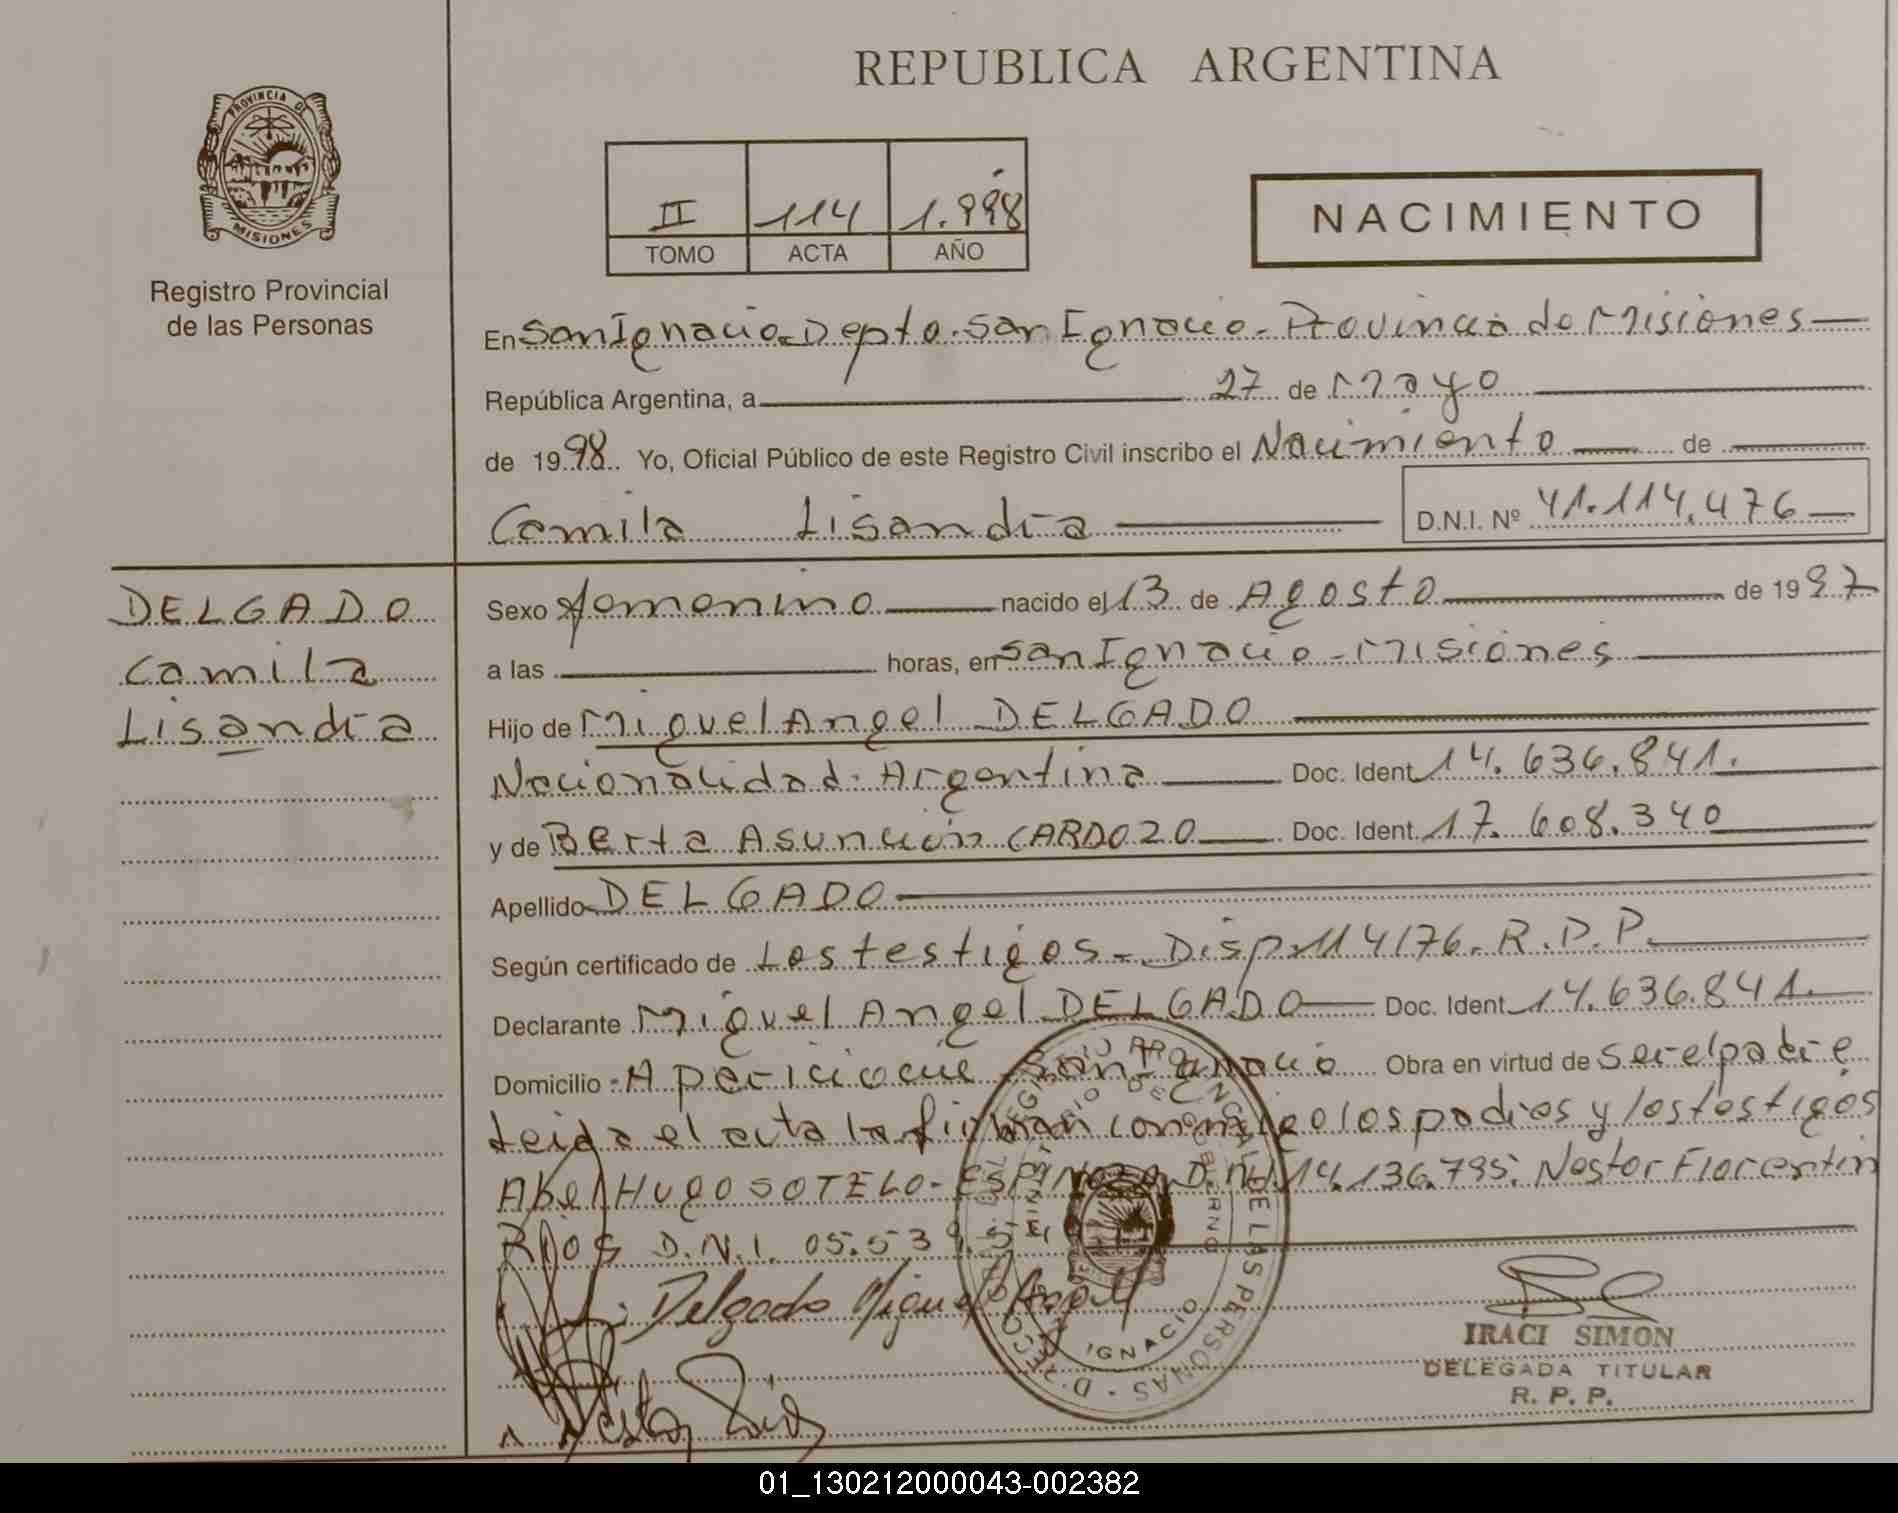 REPUBLICA ARGENTINA
PROVINCIA DE
MISIONES
Registro Provincial
de las Personas
II 114 1.998
TOMO ACTA AÑO
NACIMIENTO
En San Ignacio - Depto. San Ignacio - Provincia de Misiones
República Argentina, a 27 de Mayo
de 1998 Yo, Oficial Público de este Registro Civil inscribo el Nacimiento de
Camila Lisandra D.N.I. Nº 41.114.476
DELGADO
Camila
Lisandra
Sexo femenino nacido el 13 de Agosto de 1997
a las horas, en San Ignacio - Misiones
Hijo de Miguel Angel DELGADO
Nacionalidad: Argentina Doc. Ident. 14.636.841.
y de Berta Asunción CARDOZO Doc. Ident. 17.608.340
Apellido DELGADO
Según certificado de Los testigos - Disp. 114/76. R.P.P.
Declarante Miguel Angel DELGADO Doc. Ident. 14.636.841.
Domicilio: San Ignacio Obra en virtud de ser el padre
Leida el acta la firman conmigo los padres y los testigos
Abel Hugo SOTELO - ESPINOZA D.N.I. 14.136.795. Nestor Florentin
Rios D.N.I. 05.539.
Delgado Miguel Angel
IGNACIO
IRACI SIMON
DELEGADA TITULAR
R. P. P.
01_130212000043-002382